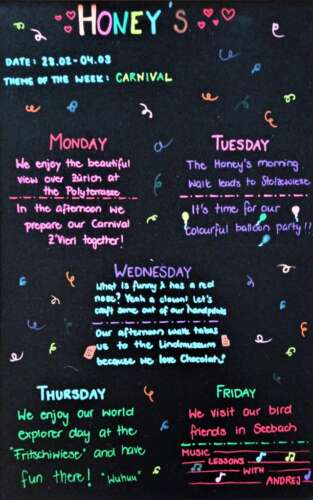 HONEY'S
DATE: 28.02-04.03
THEME OF THE WEEK: CARNIVAL
MONDAY
We enjoy the beautiful
view over Zürich at
the Polyterrasse
In the afternoon we
prepare our Carnival
Z'Vieri together!
TUESDAY
The Honey's morning
Walk leads to Stolzewiese
It's time for our
Colourful balloon party!!
WEDNESDAY
What is funny & has a red
nose? Yeah a clown! Let's
craft some out of our handprints
Our afternoon walk takes
us to the Lindmuseum
because we love Chocolat!
THURSDAY
We enjoy our world
explorer day at the
"Fritschiwiese" and have
fun there! "Wuhuu"
FRIDAY
We visit our bird
friends in Seebach
MUSIC
LESSONS
WITH
ANDREJ